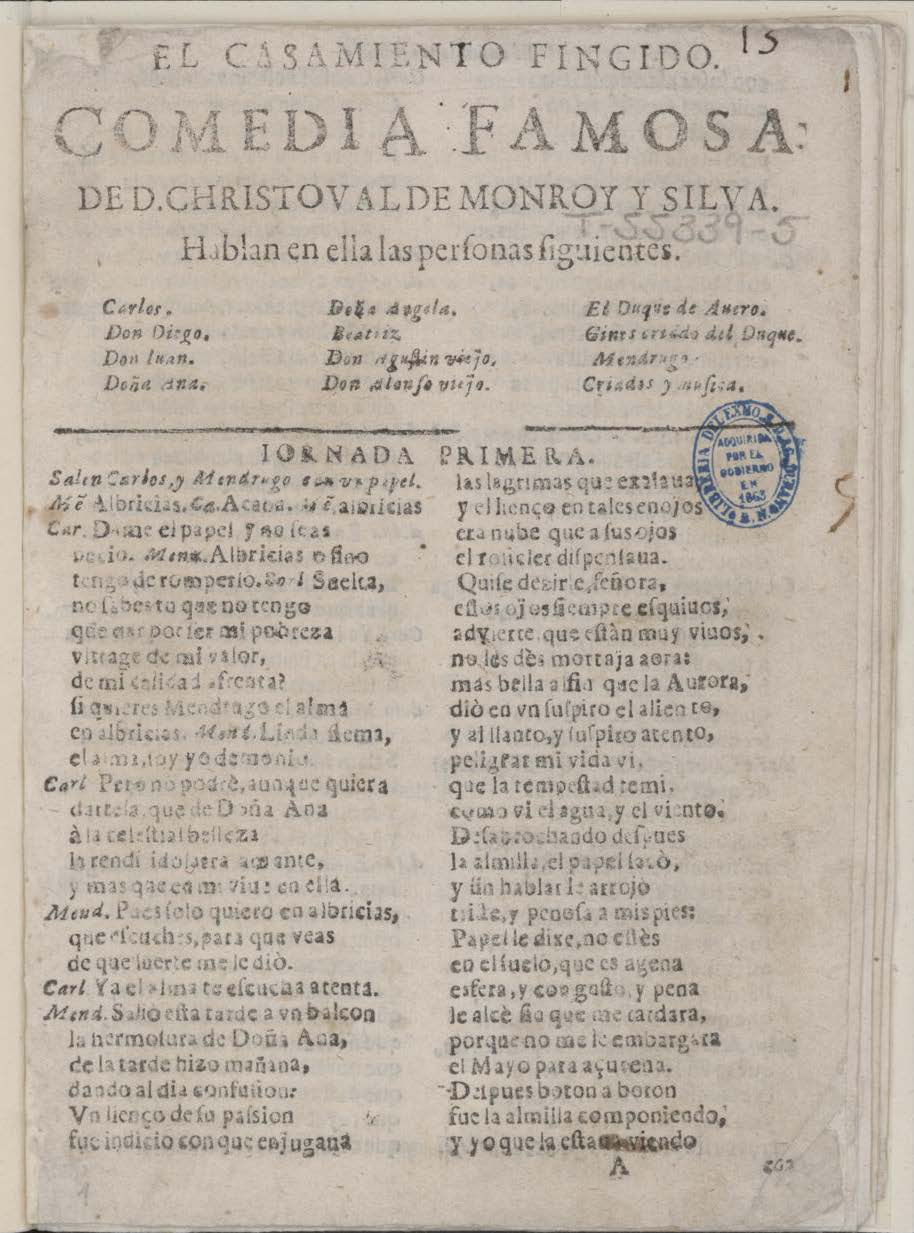 15
EL CASAMIENTO FINGIDO.
1
COMEDIA FAMOSA:
DE D. CHRISTOVAL DE MONROY Y SILVA.
T-55339-5
Hablan en ella las perſonas ſiguientes.
Carlos.
Don Diego.
Don Iuan.
Doña Ana.
Doña Angela.
Beatriz
Don Aguſtin viejo.
Don Alonſo viejo.
El Duque de Auero.
Gines criado del Duque.
Mendrugo.
Criados y muſica.
LIBRERIA DEL EXMO. S. D. AG. DURAN B. N.
ADQUIRIDA
POR EL
GOBIERNO
EN
1863
IORNADA PRIMERA.
Salen Carlos, y Mendrugo con vn papel.
Mē Albricias. Ca. Acaba. Mē. albricias
Car. Dame el papel y no ſeas
necio. Men. Albricias o ſino
tengo de romperlo. Carl Suelta,
no ſabes tu que no tengo
que dar por ſer mi pobreza
vltrage de mi valor,
de mi calidad afrenta?
ſi quieres Mendrugo el alma
en albricias. Mend. Linda flema,
el alma, ſoy yo demonio.
Carl Pero no podrè, aunque quiera
dartela, que de Doña Ana
à la celeſtial belleza
la rendi idolatra amante,
y mas que en mi viue en ella.
Mend. Pues ſolo quiero en albricias,
que eſcuches, para que veas
de que ſuerte me le diò.
Carl Ya el alma te eſcucha atenta.
Mend. Saliò eſta tarde a vn balcon
la hermoſura de Doña Ana,
de la tarde hizo mañana,
dando al dia confuſion:
Vn lienço de ſu paſsion
fue indicio con que enjugaua
las lagrimas que exalaua
y el lienço en tales enojos
era nube que a ſus ojos
el roſicler diſpenſaua.
Quiſe dezirle, ſeñora,
eſſos ojos ſiempre eſquiuos,
aduierte, que eſtàn muy viuos,
no les dès mortaja aora:
mas bella al fin que la Aurora,
diò en vn ſuſpiro el aliento,
y al llanto, y ſuſpiro atento,
peligrar mi vida vi,
que la tempeſtad temi,
como vi el agua, y el viento.
Deſabrochando deſpues
la almilla, el papel ſacò,
y ſin hablar le arrojò
triſte, y penoſa a mis pies:
Papel le dixe, no eſtès
en el ſuelo, que es agena
esfera, y con guſto, y pena
le alcè ſin que me tardara,
porque no me le embargara
el Mayo para açucena.
Deſpues boton a boton
fue la almilla componiendo,
y yo que la eſtaua viendo
A
1